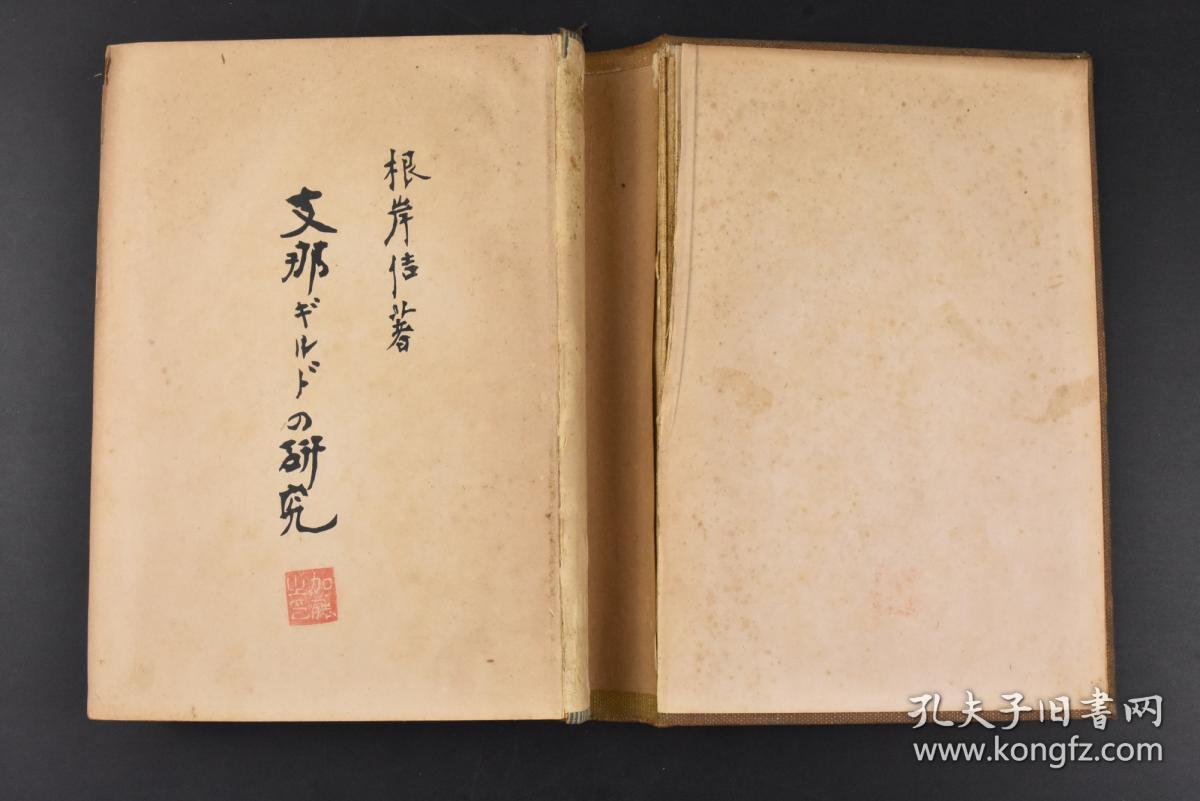 根岸佶著
支那ギルドの研究
加藤
之印
孔夫子旧书网
www.kongfz.com